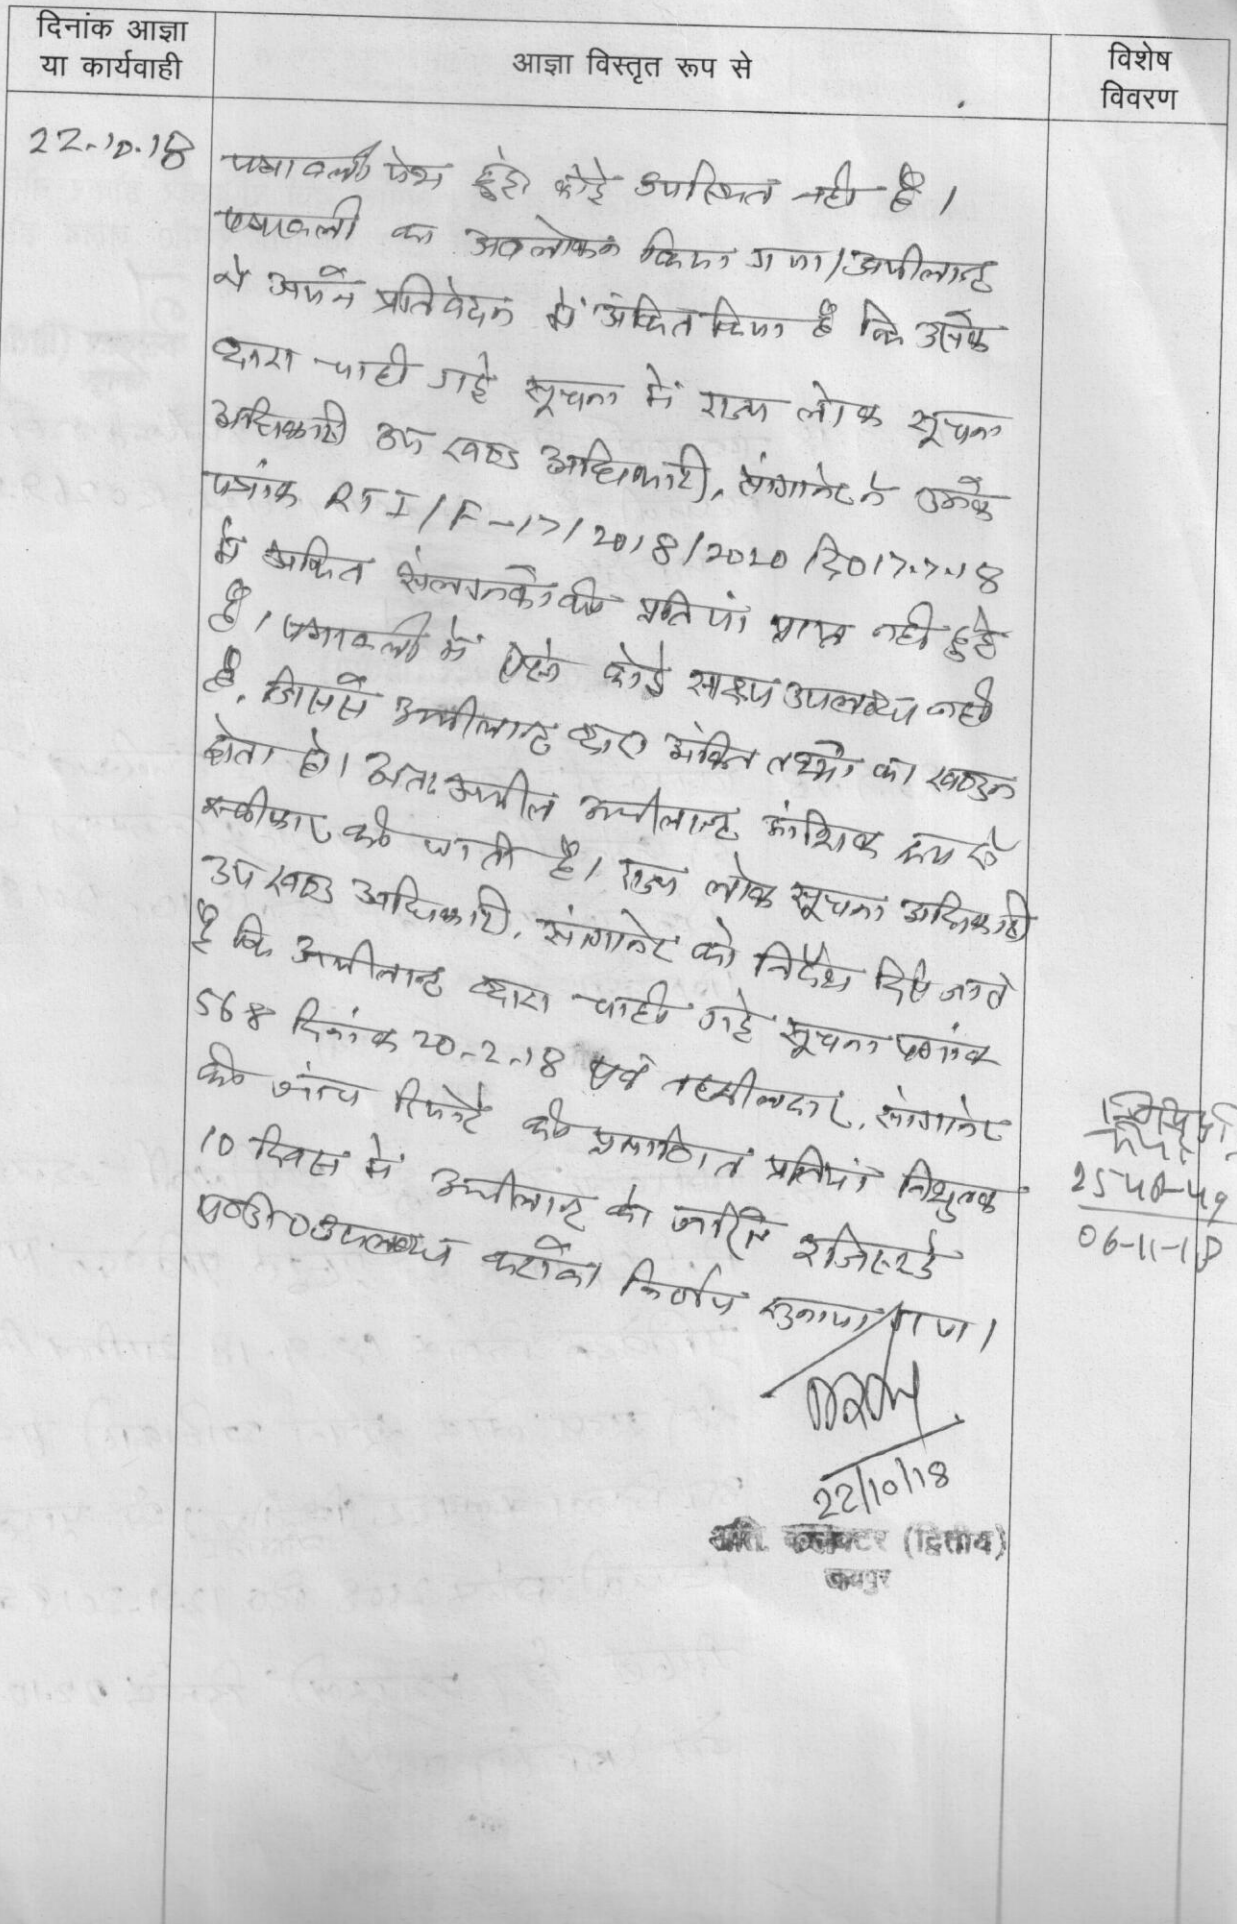 दिनांक आज्ञा
या कार्यवाही
आज्ञा विस्तृत रूप से
विशेष
विवरण
22-10-18
पत्रावली पेश हुई। कोई उपस्थित नही है।
पत्रावली का अवलोकन किया गया। अपीलान्ट
ने अपने प्रतिवेदन में अंकित किया है कि उसके
द्वारा चाही गई सूचना में राज्य लोक सूचना
अधिकारी उप खण्ड अधिकारी, सांगानेर ने उनके
पत्रांक RTI/F-17/2018/2020 दि० 17.7.18
में अंकित संलग्नकों की प्रतियां प्राप्त नही हुई
है। पत्रावली में ऐसे कोई साक्ष्य उपलब्ध नही
है, जिससे अपीलान्ट द्वारा अंकित तथ्यों का खण्डन
होता हो। अतः अपील अपीलान्ट आंशिक रूप से
स्वीकार की जाती है। राज्य लोक सूचना अधिकारी
उप खण्ड अधिकारी, सांगानेर को निर्देश दिये जाते
है कि अपीलान्ट द्वारा चाही गई सूचना पत्रांक
568 दिनांक 20-2-18 एवं तहसीलदार, सांगानेर
की जांच रिपोर्ट की प्रमाणित प्रतियां निशुल्क
10 दिवस में अपीलान्ट को जरिये रजिस्टर्ड
ए०डी० उपलब्ध करावें। निर्णय सुनाया गया।
22/10/18
अति. कलक्टर (द्वितीय)
जयपुर
2548-49
06-11-18